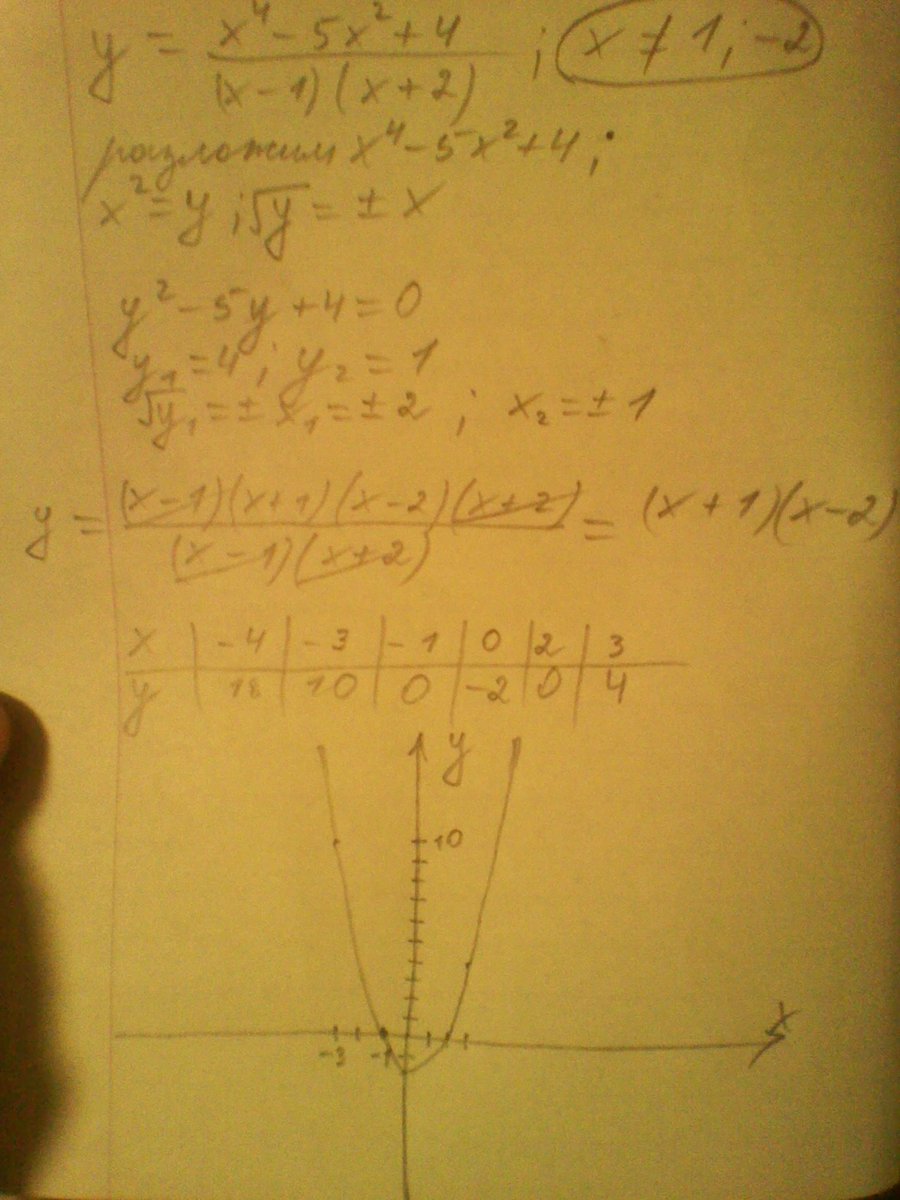 y = x⁴ - 5x² + 4 / (x - 1)(x + 2) ; x ≠ 1; -2
разложим x⁴ - 5x² + 4;
x² = y ; √y = ± x
y² - 5y + 4 = 0
y₁ = 4 ; y₂ = 1
√y₁ = ± x₁ = ± 2 ; x₂ = ± 1
y = (x - 1)(x + 1)(x - 2)(x + 2) / (x - 1)(x + 2) = (x + 1)(x - 2)
x | -4 | -3 | -1 | 0 | 2 | 3
y | 18 | 10 | 0 | -2 | 0 | 4
y
10
x
-3 -1